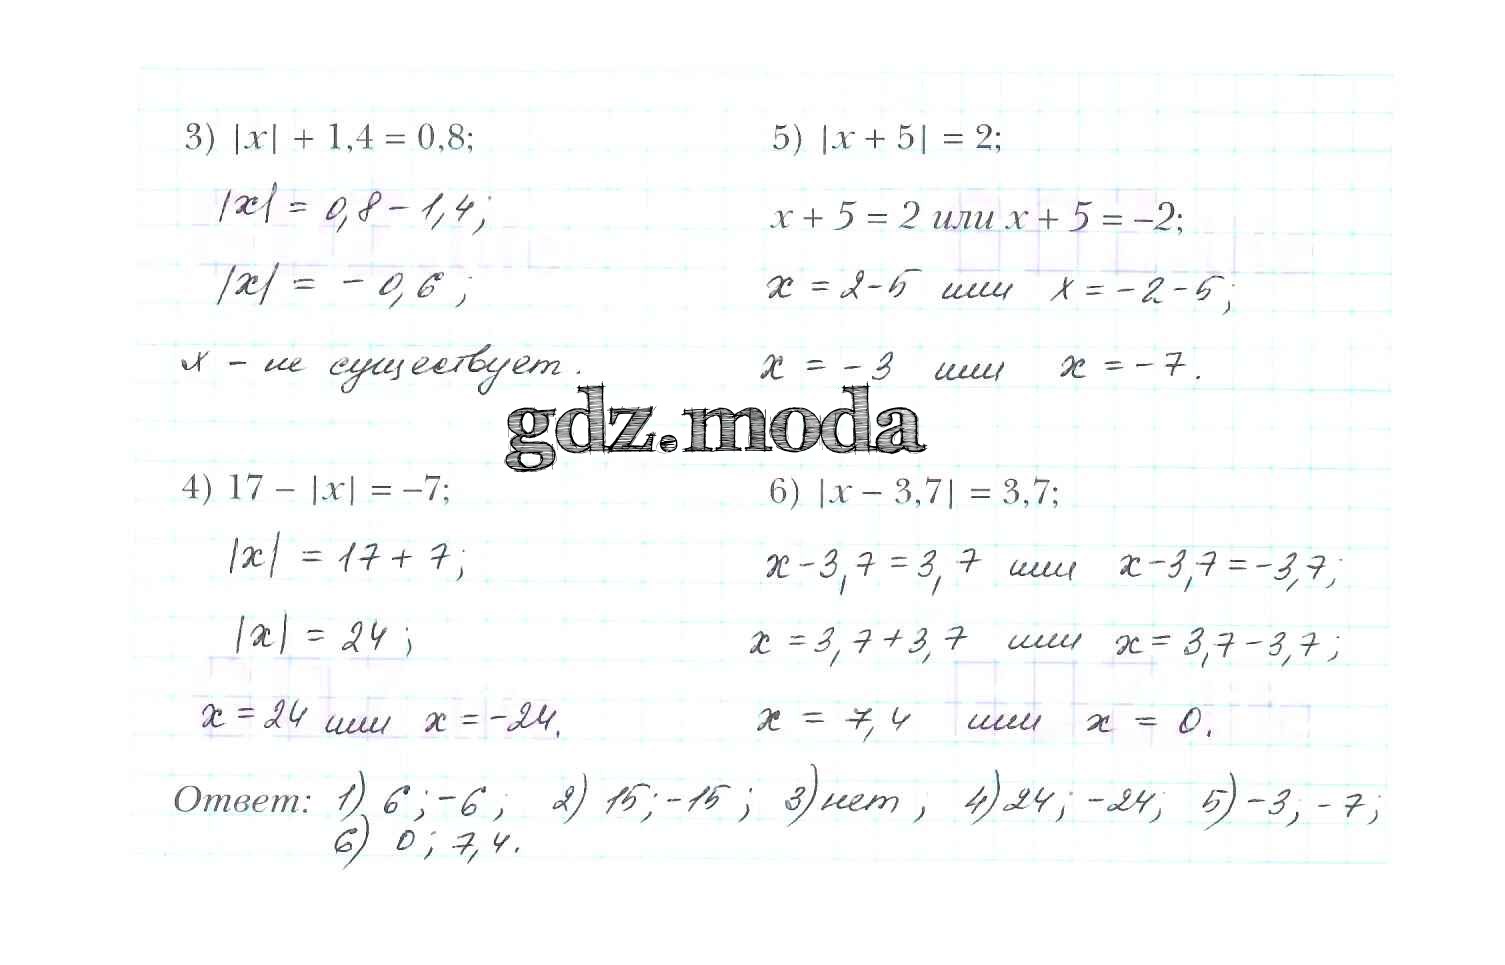 3) |x| + 1,4 = 0,8;
|x| = 0,8 – 1,4;
|x| = – 0,6 ;
x – не существует.
5) |x + 5| = 2;
x + 5 = 2 или x + 5 = –2;
x = 2 – 5 или x = – 2 – 5;
x = – 3 или x = – 7.
gdz.moda
4) 17 – |x| = –7;
|x| = 17 + 7;
|x| = 24;
x = 24 или x = –24.
6) |x – 3,7| = 3,7;
x – 3,7 = 3,7 или x – 3,7 = –3,7;
x = 3,7 + 3,7 или x = 3,7 – 3,7;
x = 7,4 или x = 0.
Ответ: 1) 6; –6; 2) 15; –15; 3) нет; 4) 24; –24; 5) –3; –7;
6) 0; 7,4.